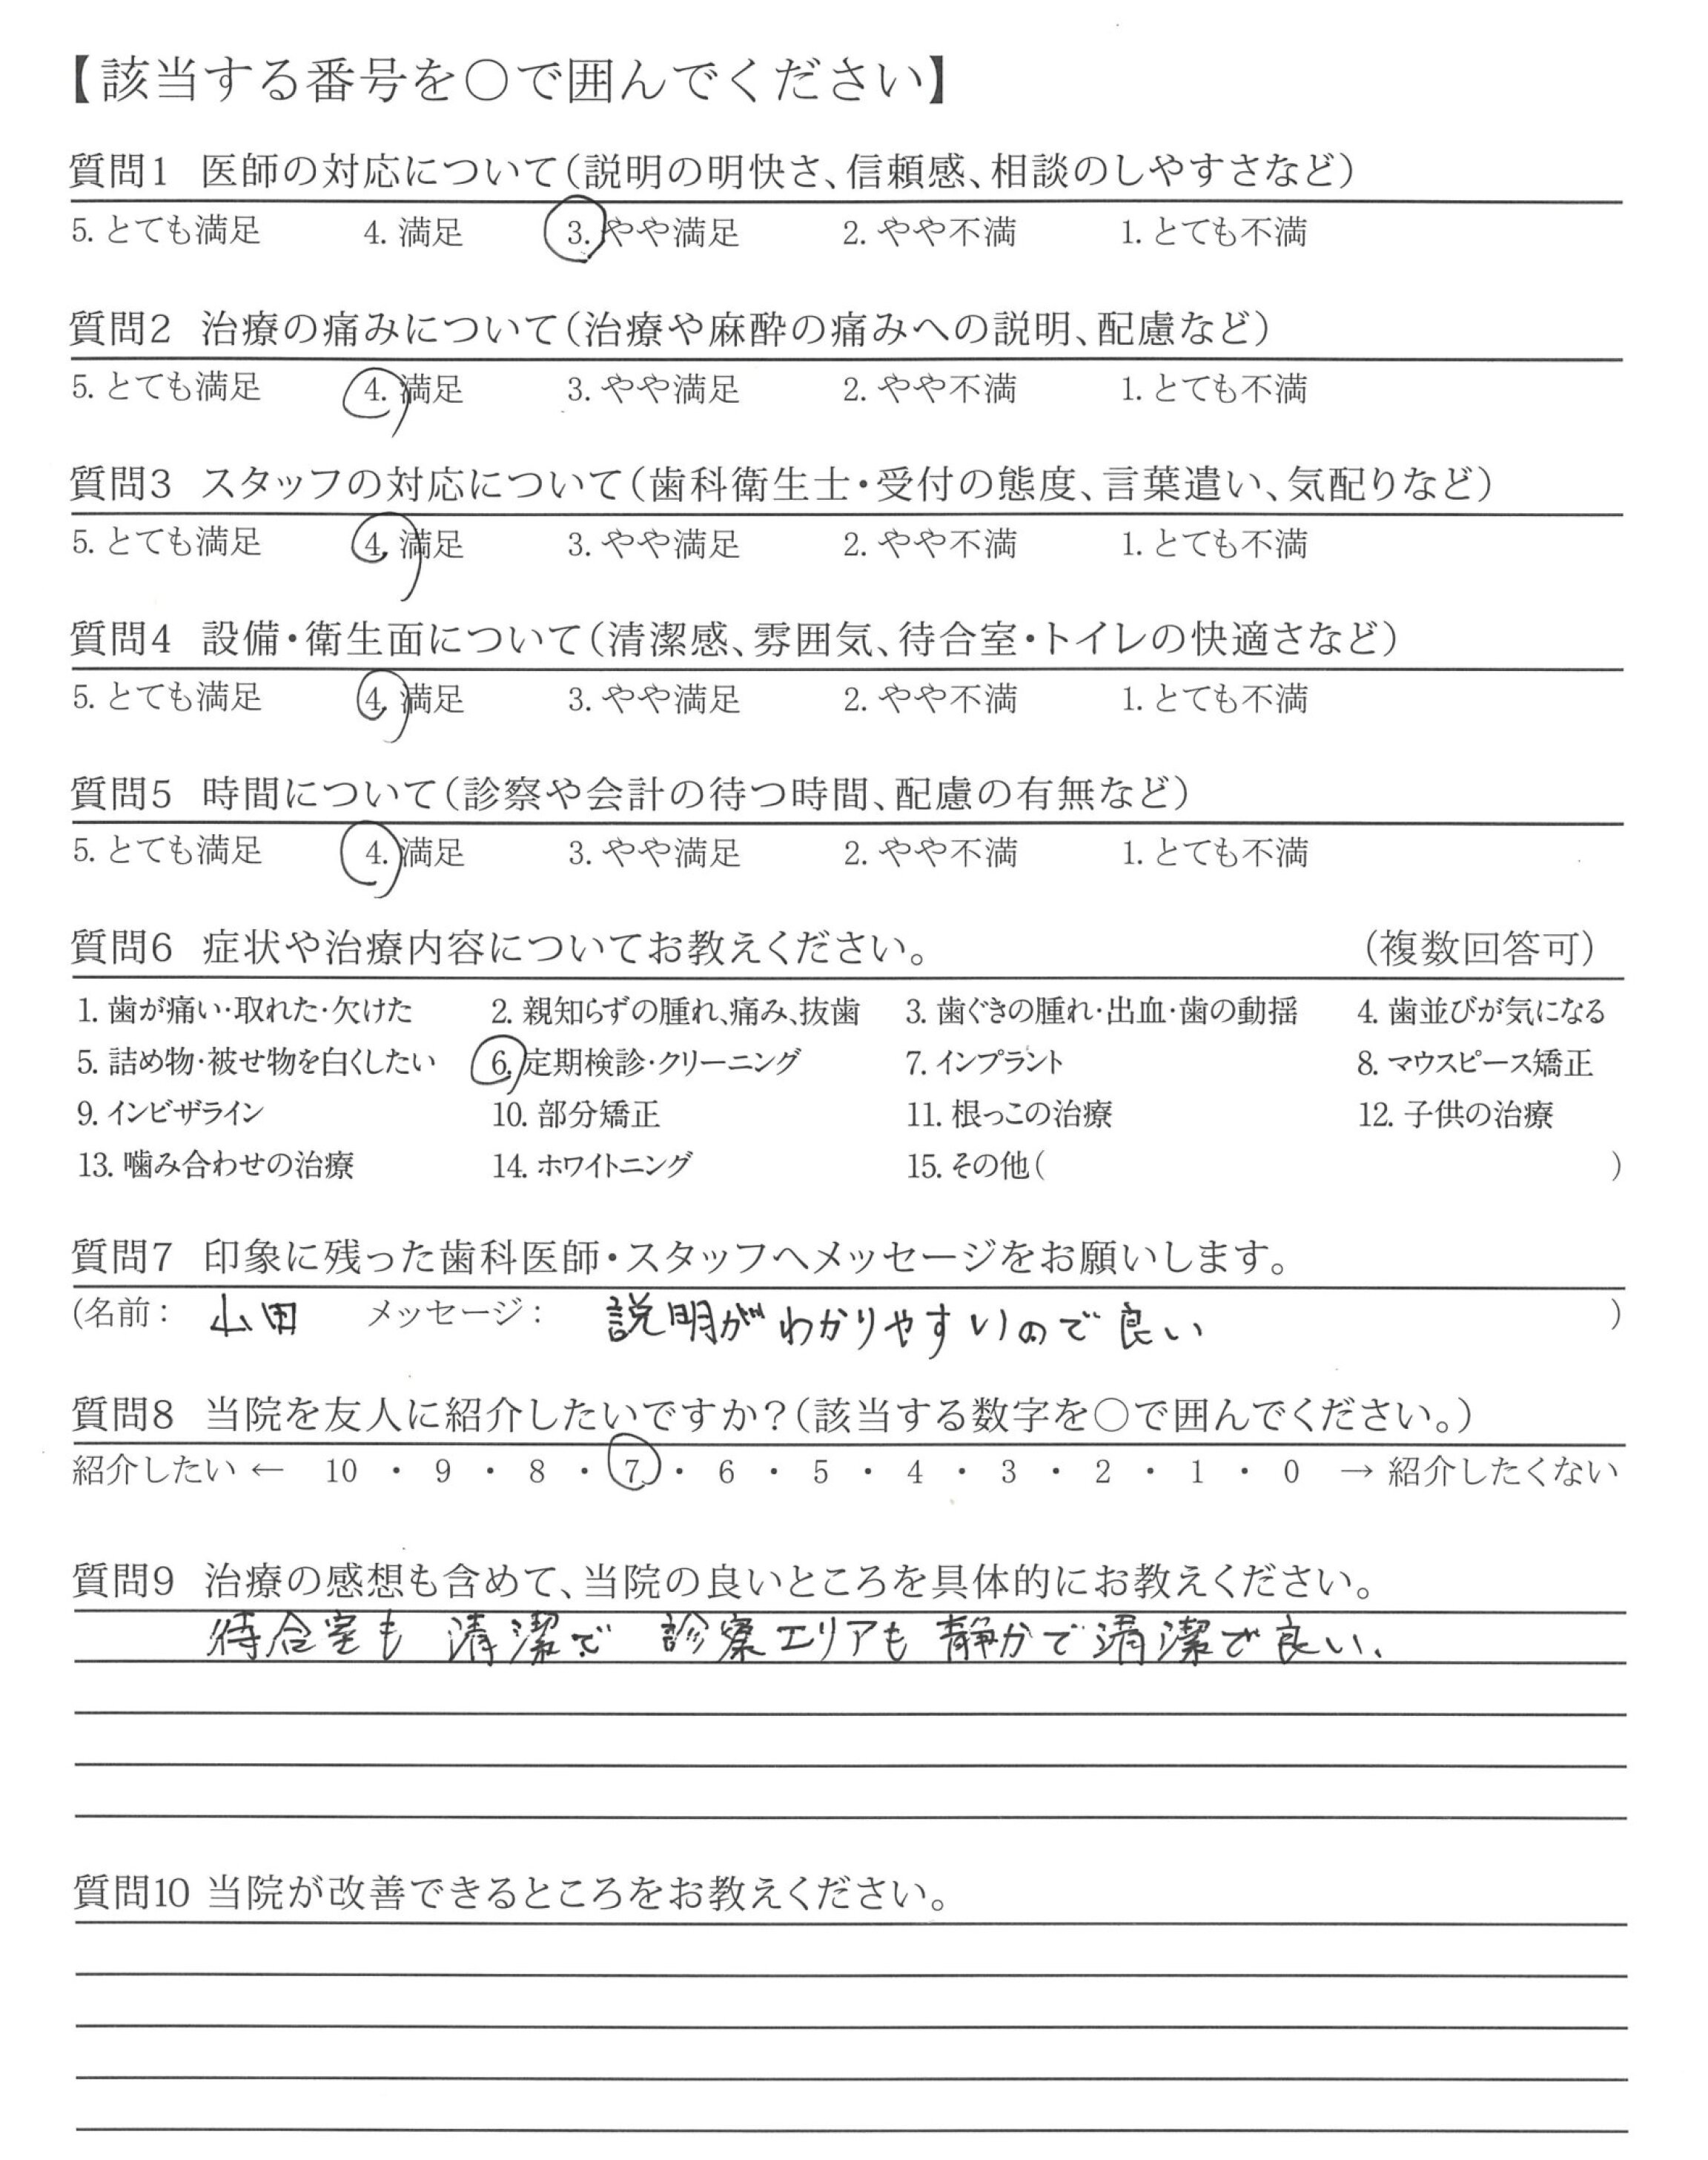 【該当する番号を○で囲んでください】
質問1 医師の対応について(説明の明快さ、信頼感、相談のしやすさなど)
5. とても満足 4. 満足 3. やや満足 2. やや不満 1. とても不満
質問2 治療の痛みについて(治療や麻酔の痛みへの説明、配慮など)
5. とても満足 4. 満足 3. やや満足 2. やや不満 1. とても不満
質問3 スタッフの対応について(歯科衛生士・受付の態度、言葉遣い、気配りなど)
5. とても満足 4. 満足 3. やや満足 2. やや不満 1. とても不満
質問4 設備・衛生面について(清潔感、雰囲気、待合室・トイレの快適さなど)
5. とても満足 4. 満足 3. やや満足 2. やや不満 1. とても不満
質問5 時間について(診察や会計の待つ時間、配慮の有無など)
5. とても満足 4. 満足 3. やや満足 2. やや不満 1. とても不満
質問6 症状や治療内容についてお教えください。 (複数回答可)
1. 歯が痛い・取れた・欠けた 2. 親知らずの腫れ、痛み、抜歯 3. 歯ぐきの腫れ・出血・歯の動揺 4. 歯並びが気になる
5. 詰め物・被せ物を白くしたい 6. 定期検診・クリーニング 7. インプラント 8. マウスピース矯正
9. インビザライン 10. 部分矯正 11. 根っこの治療 12. 子供の治療
13. 噛み合わせの治療 14. ホワイトニング 15. その他( )
質問7 印象に残った歯科医師・スタッフへメッセージをお願いします。
(名前: 山田 メッセージ: 説明がわかりやすいので良い )
質問8 当院を友人に紹介したいですか?(該当する数字を○で囲んでください。)
紹介したい ← 10 ・ 9 ・ 8 ・ 7 ・ 6 ・ 5 ・ 4 ・ 3 ・ 2 ・ 1 ・ 0 → 紹介したくない
質問9 治療の感想も含めて、当院の良いところを具体的にお教えください。
待合室も 清潔で 診察エリアも 静かで清潔で良い、
質問10 当院が改善できるところをお教えください。